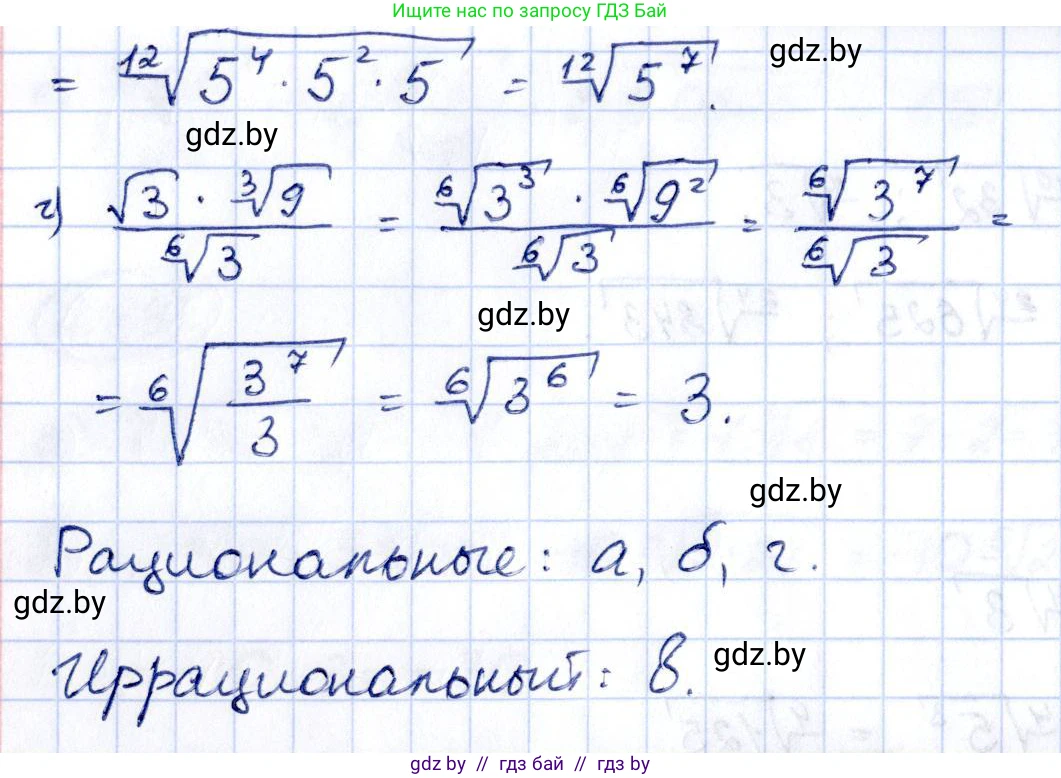 Ищите нас по запросу ГДЗ Бай
= ¹²√(5⁴ · 5² · 5) = ¹²√(5⁷).
gdz.by
gdz.by
г) (√3 · ³√9)/(⁶√3) = (⁶√(3³) · ⁶√(9²))/(⁶√3) = (⁶√(3⁷))/(⁶√3) =
gdz.by
= ⁶√(3⁷/3) = ⁶√(3⁶) = 3.
gdz.by
Рациональные: а, б, г.
gdz.by
Иррациональный: в.
gdz.by
gdz.by // гдз бай // гдз by